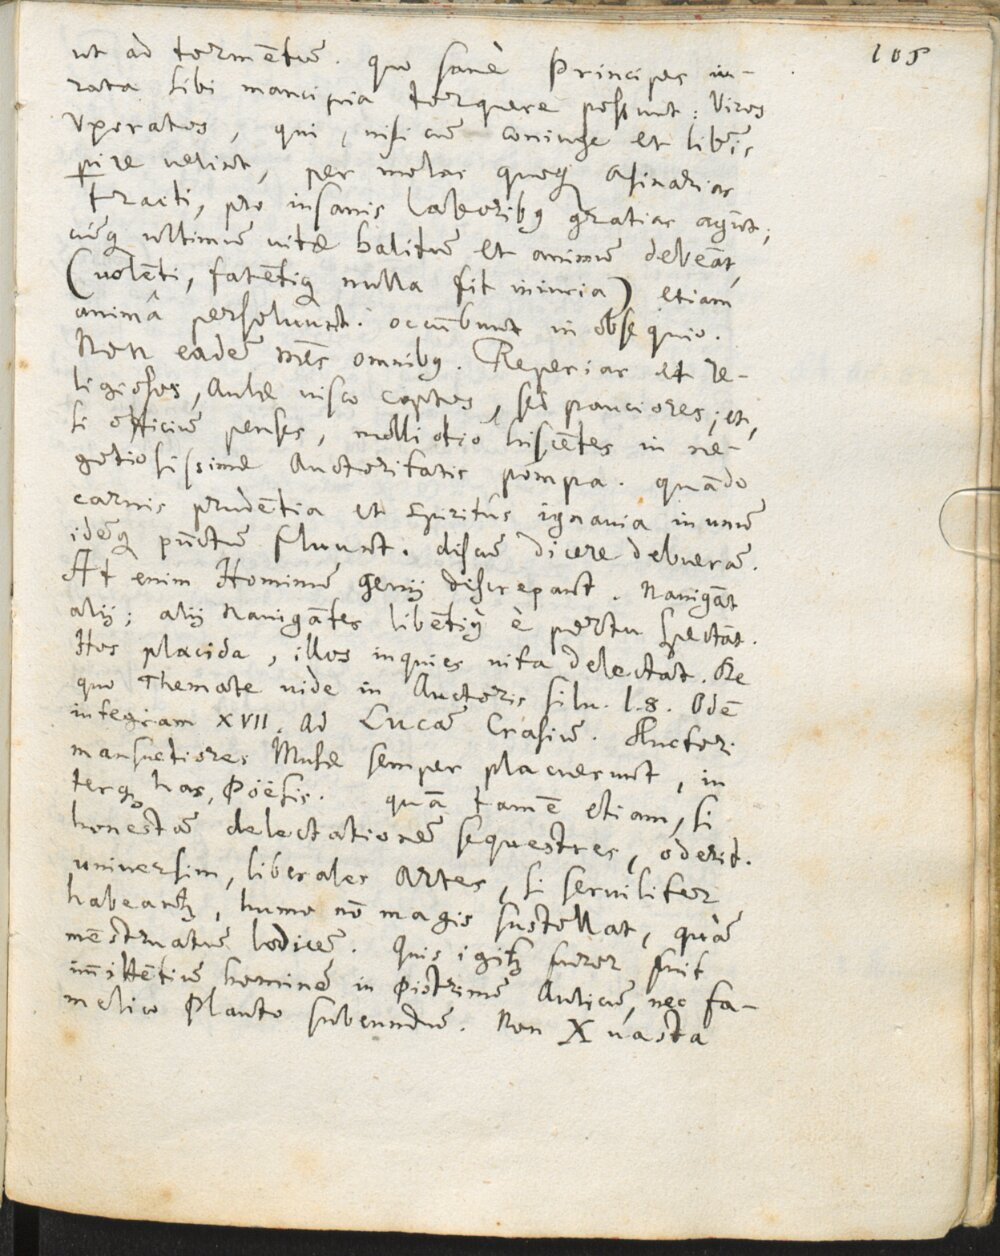 105
ut ad tormẽtũ. quo sanè Principes iu-
rata sibi mancipia torquere possunt: Viros
Vxoratos, qui, nisi cũ coniuge et libĩs
pire velint, per molas quoq; asinarias
tracti, pro insanis laboribꝫ gratias agũt;
cũq; ultimũ uitæ halitũ et animũ debeãt,
(uolẽti, fatẽtiq; nulla fit iniuria) etiam
animâ persoluunt: occũbunt in obsequio.
Non eadẽ mẽs omnibꝫ. Reperias et re-
ligiosos, Aulæ uisco captos, sed pauciores; et,
si officiũ penses, molli otio hiscẽtes in ne-
gotiosissimæ Auctoritatis pompa. quãdo
carnis prudẽtia et spiritûs ignauia in unũ
idẽq; pũctũ fluunt. discũ dicere debuerã.
At enim Hominũ genij discrepant. Nauigãt
alij; alij nauigãtes libẽtiꝰ è portu spectãt.
Hos placida, illos inquies uita delectat. De
quo Themate uide in Auctoris silu. l. 8. Odẽ
integram XVII. ad Lucã Crasiũ. Auctori
mansuetiores Musæ semper placuerunt, in
terq; has, Pöësis. quã tamẽ etiam, si
honestã delectationẽ sequestres, oderit.
uniuersim, liberales Artes, si seruiliter
habeantꝛ, humo nõ magis sustollat, quàm
mẽstruatũ lodicẽ. Quis igitꝛ furor fuit
im̃ittẽtiũ hominẽ in Pistrinũ Aulicũ, nec fa-
melico Plauto subeundũ. Non X uasta